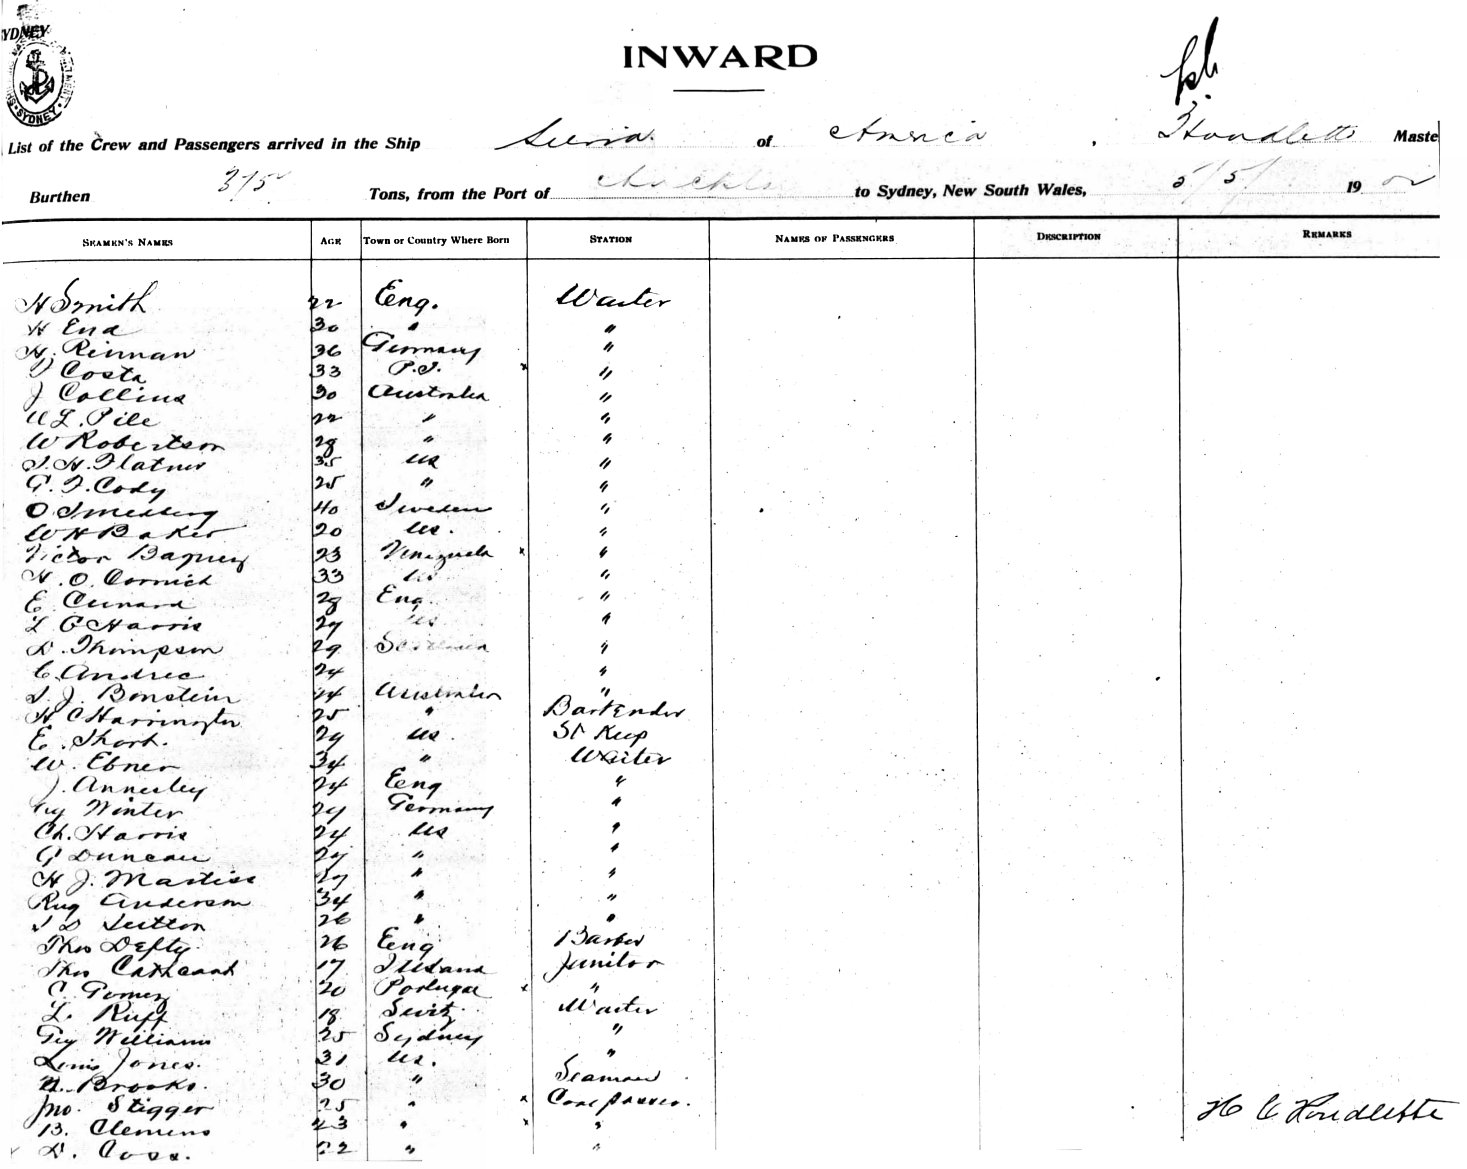 SYDNEY
SYDNEY
INWARD
List of the Crew and Passengers arrived in the Ship Sierra of America, Houdlette Maste
Burthen Tons, from the Port of to Sydney, New South Wales, 5/5/ 19 02
SEAMEN'S NAMES AGE Town or Country Where Born STATION NAMES OF PASSENGERS DESCRIPTION REMARKS
H Smith 22 Eng. Waiter
H End 30 " "
H. Rinman 36 Germany "
Costa 33 P.I. x "
J Collins 30 Australia "
L. Pile 22 " "
W Robertson 28 " "
J. H. Flatner 35 US "
G. F. Cody 25 " "
O Smedberg 40 Sweden "
W H Baker 20 US. "
Victor 23 Venezuela x "
H. O. Cormick 33 US "
E Cunard 28 Eng. "
L C Harris 27 US "
D. Thompson 29 Scotland "
C. Andree 24 "
J. Bonstein 24 Australia "
H C Harrington 25 " Bartender
E. Short. 29 US. St Keep
W. Ebner 34 " Waiter
J. Annesley 24 Eng "
Winter 24 Germany "
Ch. Harris 24 US "
G Duncan 27 " "
H J. 27 " "
Anderson 34 " "
D Sutton 26 " "
Thos Defty 26 Eng Barber
Thos Cathcart 17 Ireland Junitor
C. Gomez 20 Portugal x "
L. Ruff 18 Switz. Waiter
Williams 25 Sydney "
Louis Jones. 31 US. "
Brooks. 30 " Seaman
Jno. Stigger 25 " x Coal passer.
B. Clemens 23 " x "
D. Coss. 22 " "
H C Houdlette